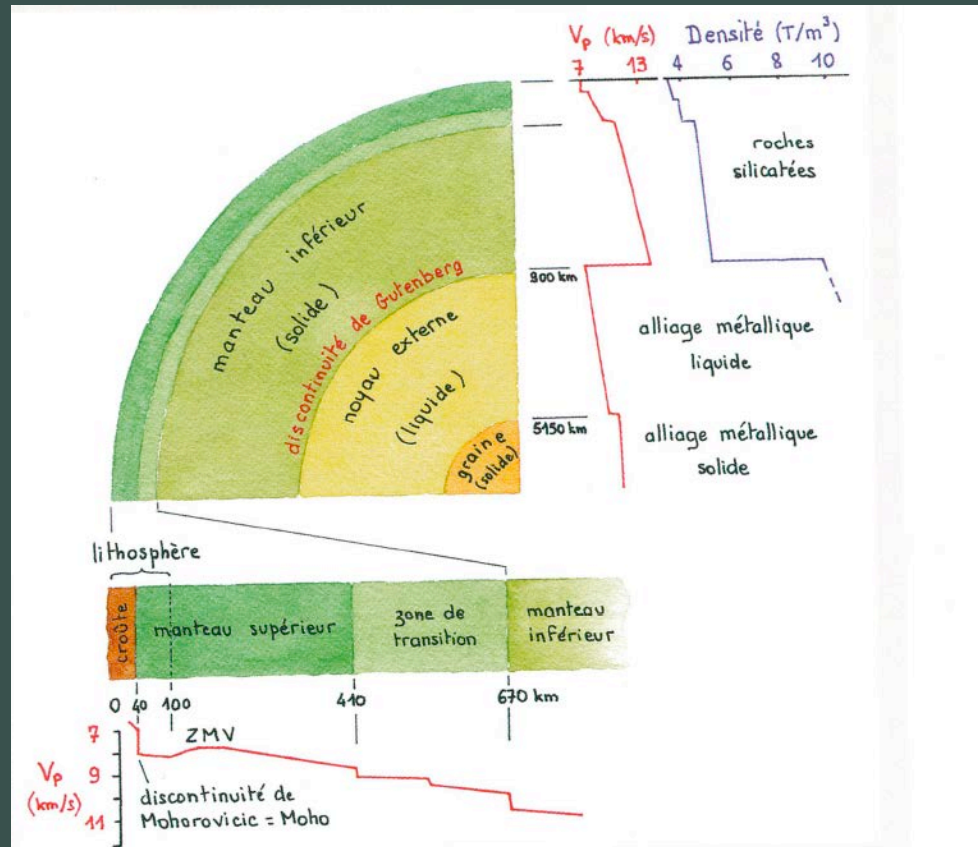 Vp (km/s)
7 13
Densité (T/m³)
4 6 8 10
roches
silicatées
manteau inférieur
(solide)
discontinuité de Gutenberg
noyau externe
(liquide)
graine
(solide)
900 km
alliage métallique
liquide
5150 km
alliage métallique
solide
lithosphère
croûte
manteau supérieur
zone de
transition
manteau
inférieur
0 40 100 410 670 km
ZMV
7
9
11
Vp
(km/s)
discontinuité de
Mohorovicic = Moho